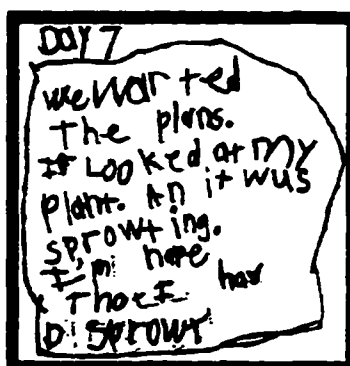 Day 7
we war ted
the plans.
It Looked at my
plant. An it wus
sprowting.
I'm hope
thoe I
Di sprowt